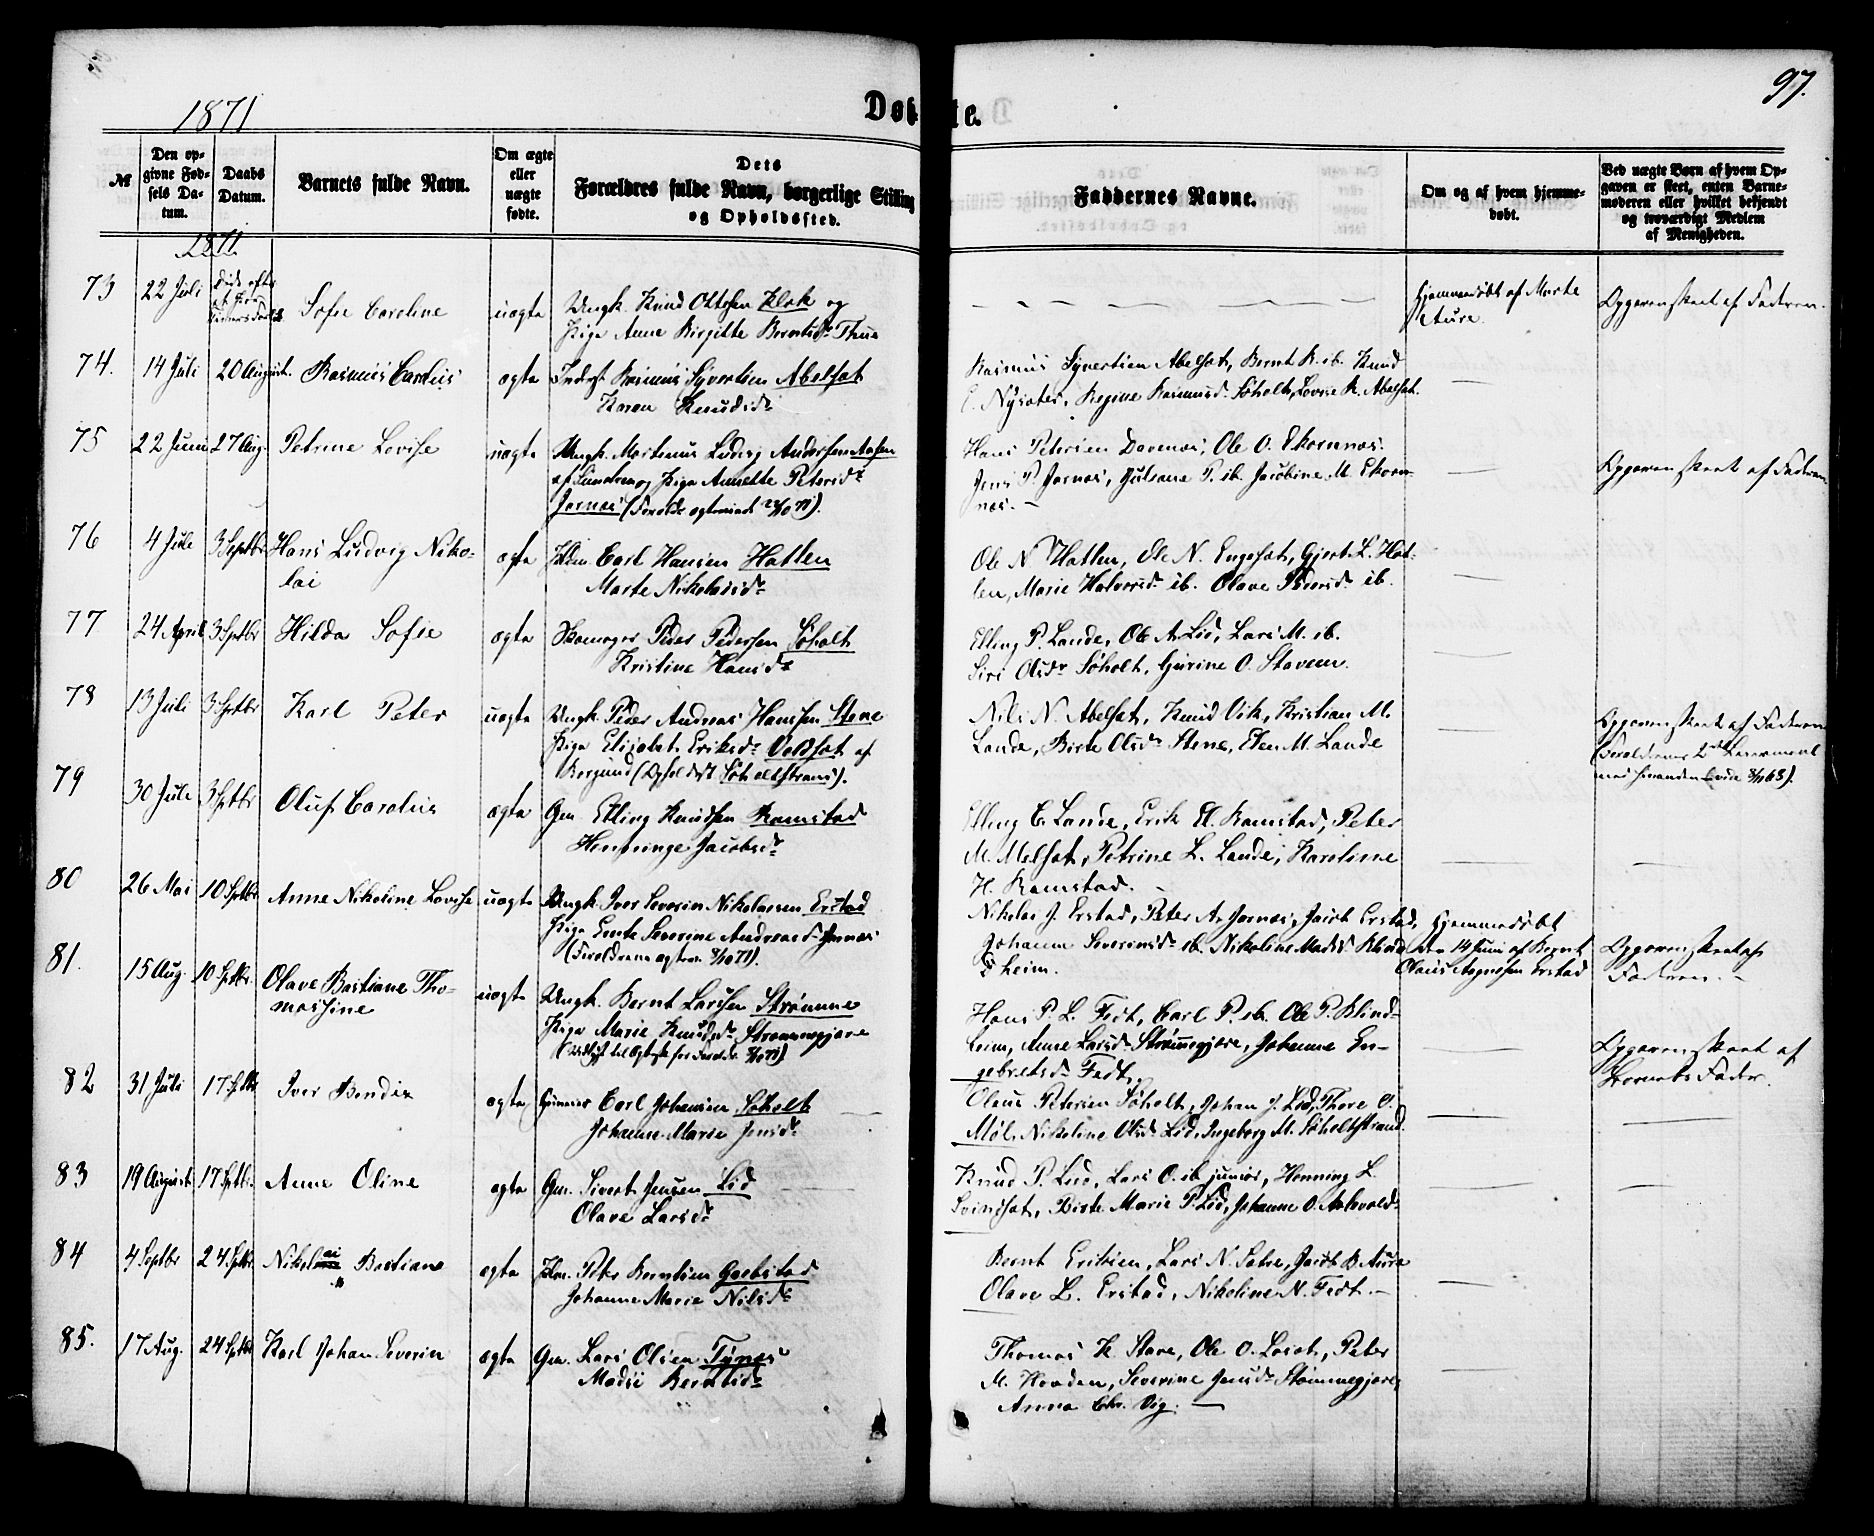 1871
Døbte.
97.
№
Den opgivne Fødsels Datum.
Daabs Datum.
Barnets fulde Navn.
Om ægte eller uægte fødte.
Dets Forældres fulde Navn, borgerlige Stilling og Opholdssted.
Faddernes Navne.
Om og af hvem hjemmedøbt.
Ved uægte Børn af hvem Opgaven er skeet, enten Barnemoderen eller hvilket bekjendt og troværdigt Medlem af Menigheden.
1871.
73 22 Juli Sofie Caroline uægte Ungk. Knud Ottesen Klok og
Pige Anne Birgitte Berntsdr Thue
Hjemmedøbt af Marte
Aure.
Opgaven skeet af Faderen.
74. 14 Juli 20 August. Rasmus Carolus ægte Inderst Rasmus Syvertsen Abelsæt
Karen Knudsdr
Rasmus Syvertsen Abelsæt, Bernt R. ib. Knud
E. Nysæter, Regine Rasmusdr Søholt, Lovise K. Abelsæt.
75 22 Juni 27 Aug. Petrine Lovise uægte Ungk. Martinus Ludvig Andersen Aasen
af Sunelven og Pige Annette Petersdr
Jarnæs (Forældr. ægteviede 22/10 71).
Hans Petersen Davenæs, Ole O. Ekornnæs.
Jens P. Jarnæs, Gulsane P. ib. Jacobine M. Ekorn-
næs.
Opgaven skeet af Faderen
76 4 Juli 3 Septbr Hans Ludvig Niko-
lai
ægte Hdm. Carl Hansen Hatlen
Marte Nikolaisdr
Ole N Hatlen, Ole N. Engesæt, Gjert L. Hat-
len, Marie Halvorsdr ib. Olave Pedersdr ib.
77 24 April 3 Septbr Hilda Sofie ægte Skomager Peder Pedersen Søholt
Kristine Hansdr
Elling P. Lande, Ole A. Lid, Lars M. ib.
Siri Olsdr Søholt, Gurine O. Stavem.
78 13 Juli 3 Septbr Karl Peter uægte Ungk. Peder Andreas Hanssen Stene
Pige Elisabet Eriksdr Veksæt af
Borgund (Opholdst Søholtstrand).
Nils N. Abelsæt, Knud Vik, Kristian M.
Lande, Birte Olsdr Stene, Elen M. Lande
Opgaven skeet af Faderen
(Forældrenes 2det Leiermaal
med hinanden
79 30 Juli 3 Septbr Oluf Carolus ægte Gm Elling Knudsen Ramstad
Henninge Jacobsdr
Elling E. Lande, Erik El. Ramstad, Peter
M. Melsæt, Petrine L. Lande, Karoline
H. Ramstad.
80 26 Mai 10 Septbr Anne Nikoline Lovise uægte Ungk. Iver Severin Nikolaisen Erstad
Pige Ente Severine Andreasdr Jarnæs
(Forældrene ægtev. 8/10 71).
Nikolai J. Erstad, Peter A. Jarnæs, Jacob Erstad,
Johanne Severinsdr ib. Nikoline Madsdr Blind-
heim.
Hjemmedøbt
den 14 Juni af Bernt
Olaus Aagesen Erstad
Opgaven skeet af
Faderen.
81. 15 Aug. 10 Septbr. Olave Bastiane Tho-
massine
uægte Ungk. Bernt Larssen Strømme
Pige Marie Knudsdr Strømmegjære
Hans P. L. Fedt, Carl P. ib. Ole P. Blind-
heim, Anne Larsdr Strømmegjære, Johanne En-
gebretsdr Fedt.
Opgaven skeet af
Barnets Fader.
82 31 Juli 17 Septbr Iver Bendix ægte Carl Johansen Søholt
Johanne Marie Jensdr
Olaus Petersen Søholt, Johan J. Lid, Thore O.
Møl, Nikoline Olsdr Lid, Ingeborg M. Søholtstrand.
83 19 August 17 Septbr. Anne Oline ægte Gm. Sivert Jensen Lid
Olave Larsdr
Knud P. Lid, Lars O. ib. junior, Henning L.
Svindsæt, Birte Marie P. Lid, Johanne O.
84 4 Septbr 24 Septbr. Nikolai Bastian ægte Hdm. Peter Berntsen Gjetstad
Johanne Marie Nilsdr
Bernt Eriksen, Lars N. Sætre, Jacob B. Aure
Olave L. Erstad, Nikoline N. Fedt.
85. 17 Aug. 24 Septbr Karl Johan Severin ægte Gm. Lars Olsen Tynes
Madsi Berntsdr
Thomas K. Stave, Ole O. Peter
M. Hovden, Severine Jensdr Strømmegjære,
Anna Chr. Vig.